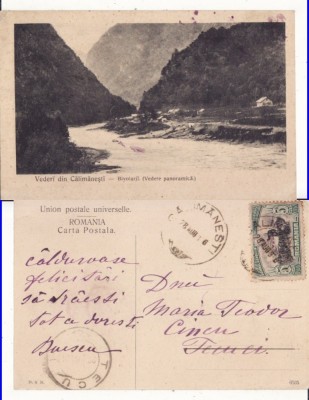 Vederi din Călimănești — Bivolarii (Vedere panoramică.)
Union postale universelle.
ROMANIA
Carta Postala.
CĂLIMĂNEȘTI
călduroase
felicitări
să trăești
tot ce dorești
Dnei
Maria Teodor
Cincu
Tecuci
TECUCI